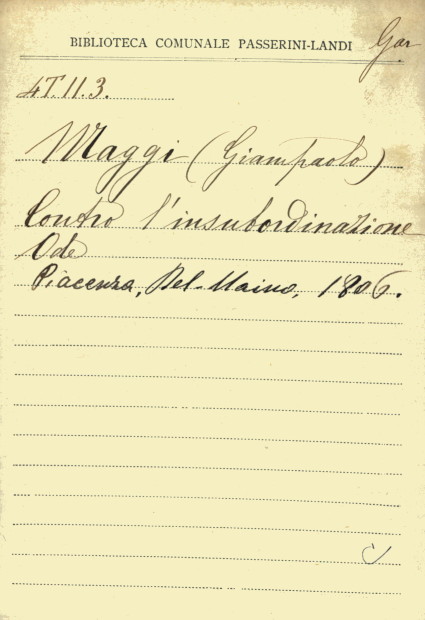 BIBLIOTECA COMUNALE PASSERINI-LANDI
4T.II.3.
Maggi (Giampaolo)
Contro l'insubordinazione
Ode
Piacenza, Del-Maino, 1806.